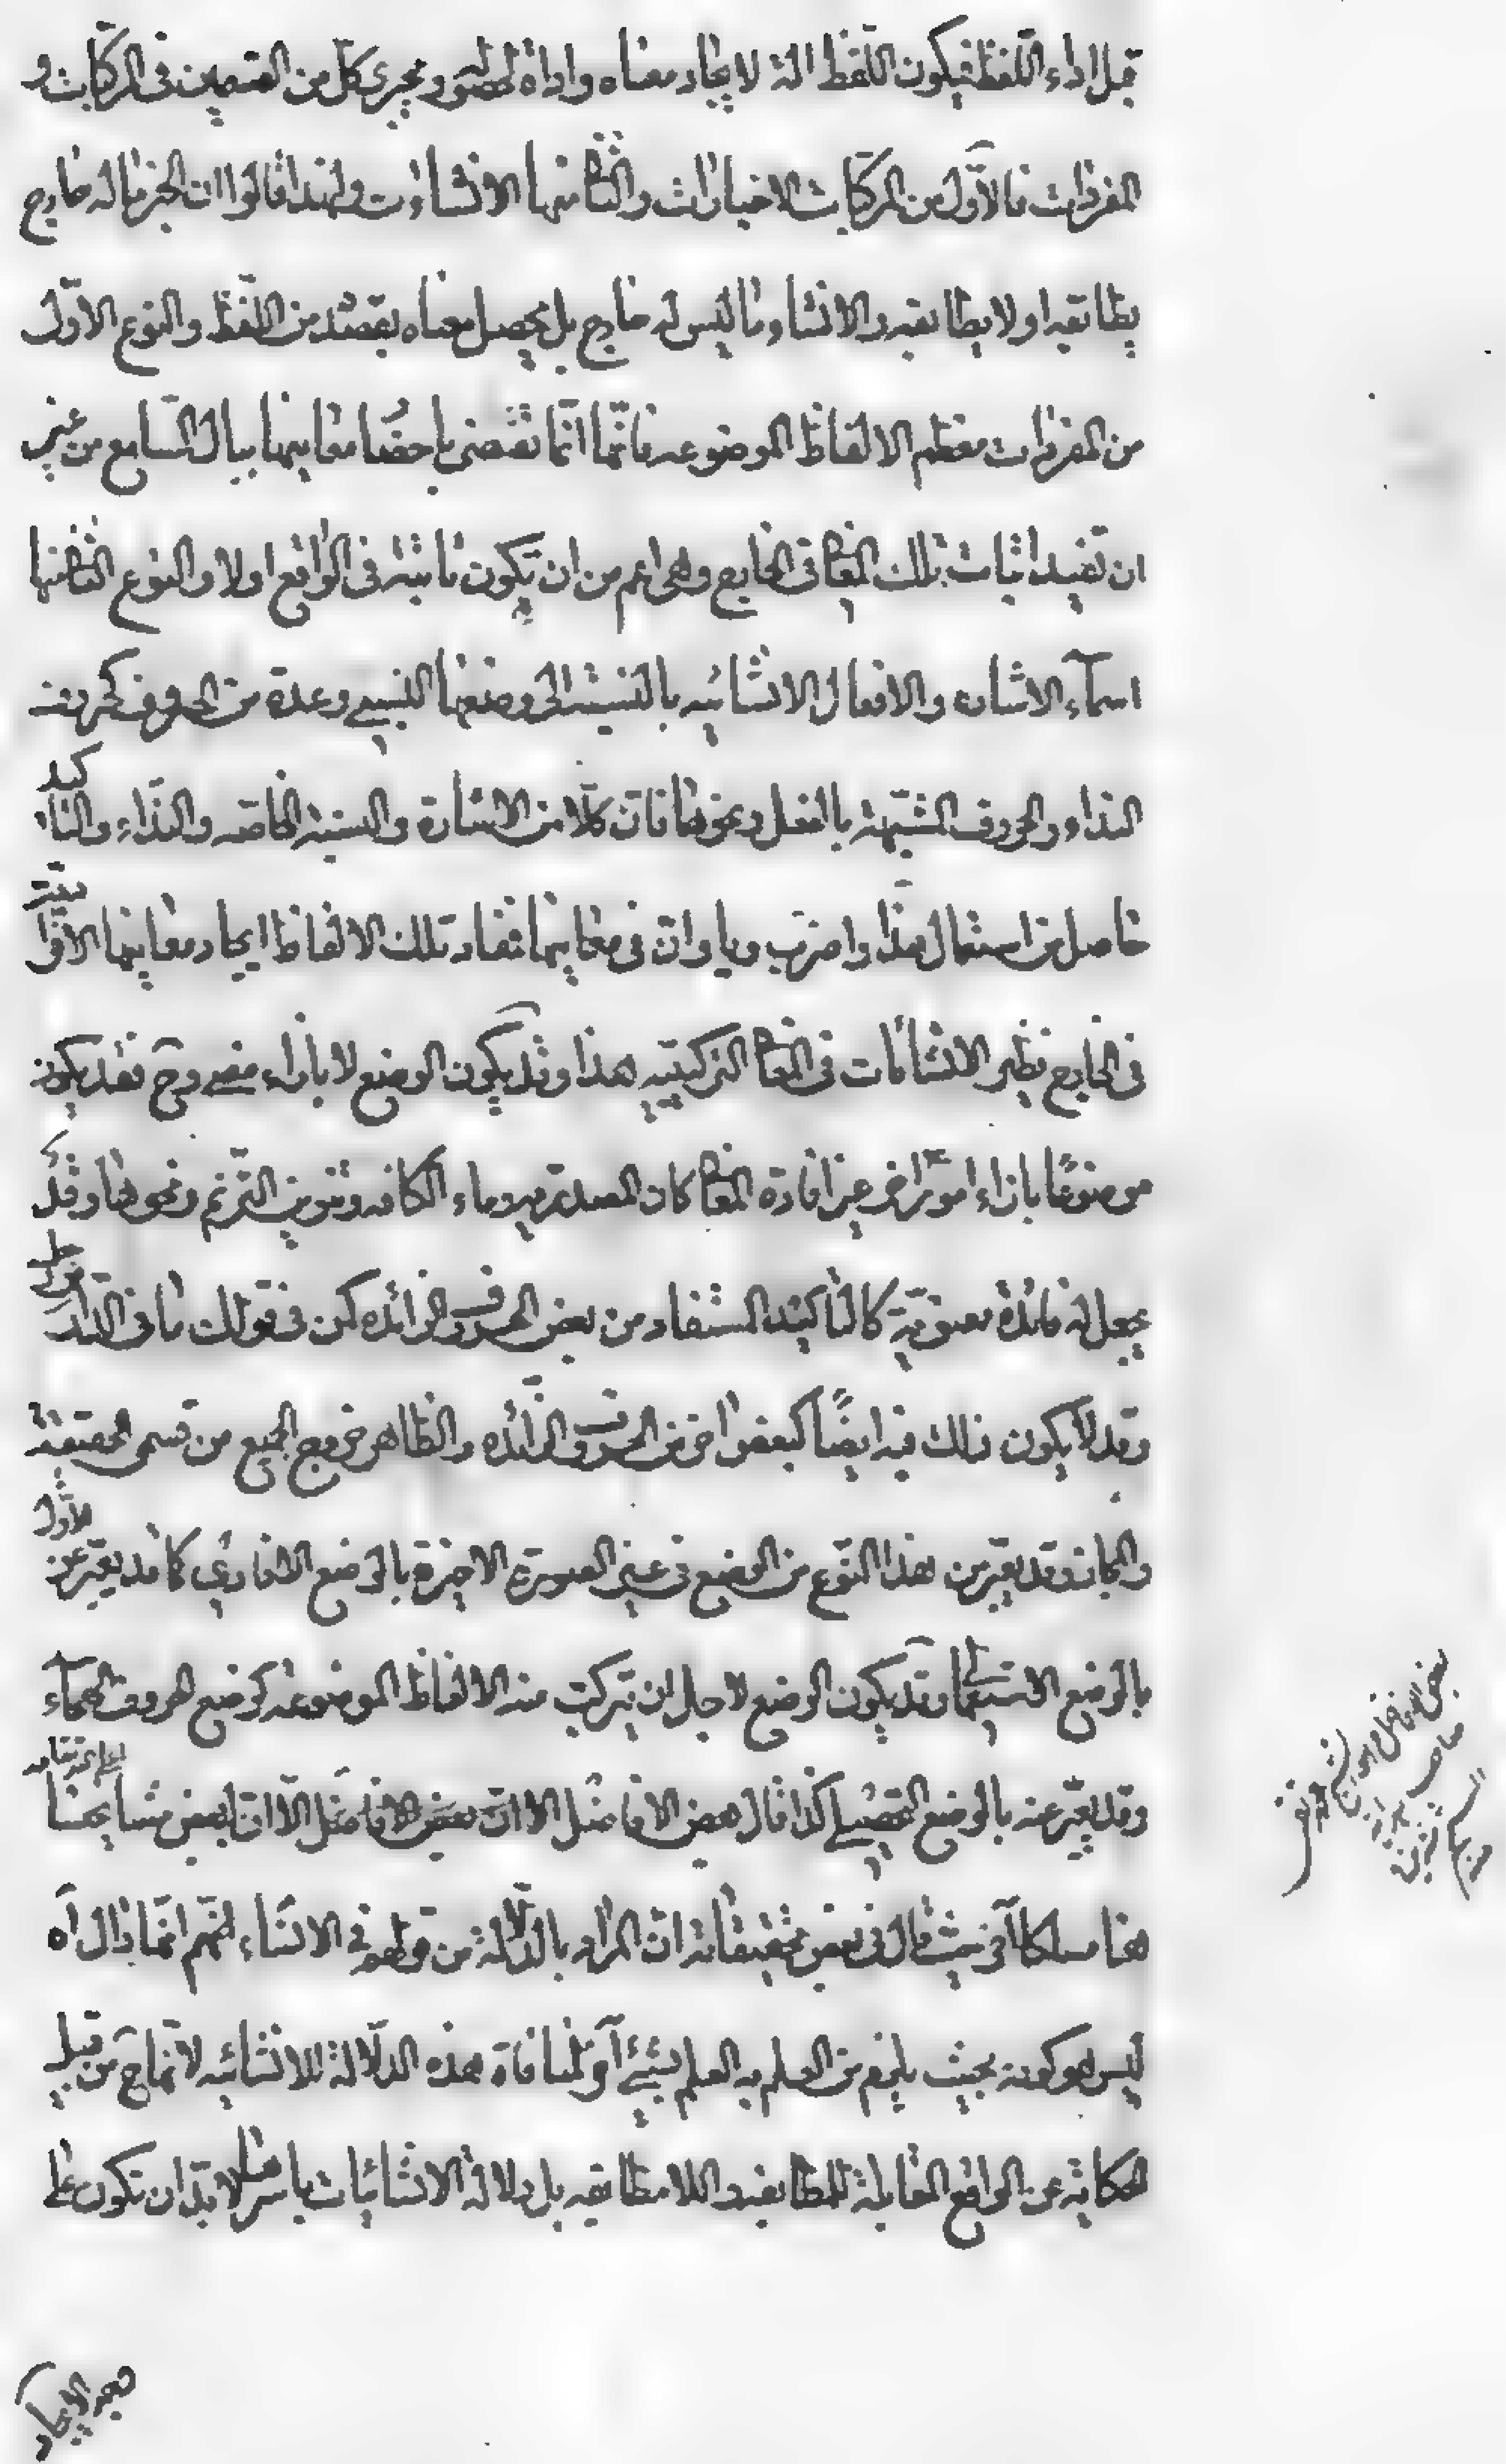 قبل اداء اللّفظ فيكون اللّفظ الة لايجاد معناه واداة لحصوله ويجرى كلّ من القسمين فى المركّبات و
المفردات فالاوّل من المركّبات الاخبارات والثّانى منها الانشاءات ولهذا قالوا ان الخبر ما له خارج
يطابقه او لا يطابقه والانشاء ما ليس له خارج بل يحصل معناه بقصده من اللّفظ والنوع الاوّل
من المفردات معظم الالفاظ الموضوعه فانّها انّما تقتضى باحضار معانيها ببال السّامع من غير
ان تفيد اثبات تلك المعانى فى الخارج وهى اعم من ان يكون ثابتة فى الواقع اولا والنوع الثّانى منها
اسمآء الاشاره والافعال الانشائيه بالنسبة الى وضعها النسبى وعدة من الحروف كحروف
النداء والحروف المشبّهة بالفعل ونحوها فان كلّا من الاشارة والنسبة الخاصه والنّداء والتاكيد
حاصل من استعمال هذا واضرب ويا وان فى معانيها فمفاد تلك الالفاظ ايجاد معانيها الافراديّة
فى الخارج نظير الانشاءات فى المعانى التركيبيه هذا وقد يكون الوضع لا بازاء معنى وح فقد يكون
موضوعًا بازاء امور اخر غير افادة المعانى كان المصدريه وماء الكافه وتنوين التّرنم ونحوها وقد
يجعل له فائدة معنويّة كالتاكيد المستفاد من بعض الحروف الزائده كمن فى قولك ما فى الدّار من رجل
وقد لا يكون ذلك فيه ايضًا كبعض اخر من الحروف الزّائده والظاهر خروج الجميع من قسمى الحقيقة
والمجاز وقد يعبّر من هذا النّوع من الوضع فى غير الصورة الاخيرة بالوضع الافادى كما قد يعبّر عن الاوّل
بالوضع الاستعمالى وقد يكون الوضع لاجل ان يتركب منه الالفاظ الموضوعه كوضع حروف الهجاء
وقد يعبّر عنه بالوضع التحصيلى كذا قال بعض الافاضل الا ان بعض الافاضل الّا ان لبعض مشايخنا اعلى الله مقامه
هنا مسلكا آخر حيث قال فى بعض تحقيقاته ان المراد بالدّلالة من قولهم فى الانشاء انّهم انّما دال آه
ليس هو كونه بحيث يلزم من العلم به العلم بشيئ آخر لمنافاة هذه الدلّالة للانشائيه لانّها ح من قبيل
الحكاية عن الواقع القابلة للمطابقه واللامطابقه بل دلالة الانشائيات باسرها لا بدّ ان تكون على
بعض الافاضل هو الشيخ محمد تقى
صاحب هداية
المسترشدين
منه
وجه الايجاد